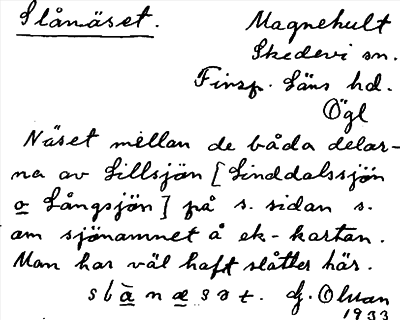 Slånäset.
Magnehult
Skedevi sn.
Finsp. Läns hd.
Ögl
Näset mellan de båda delar-
na av Lillsjön [Linddalssjön
o Långsjön] på s. sidan s.
om sjönamnet å ek-kartan.
Man har väl haft slåtter här.
G. Olsson
1933